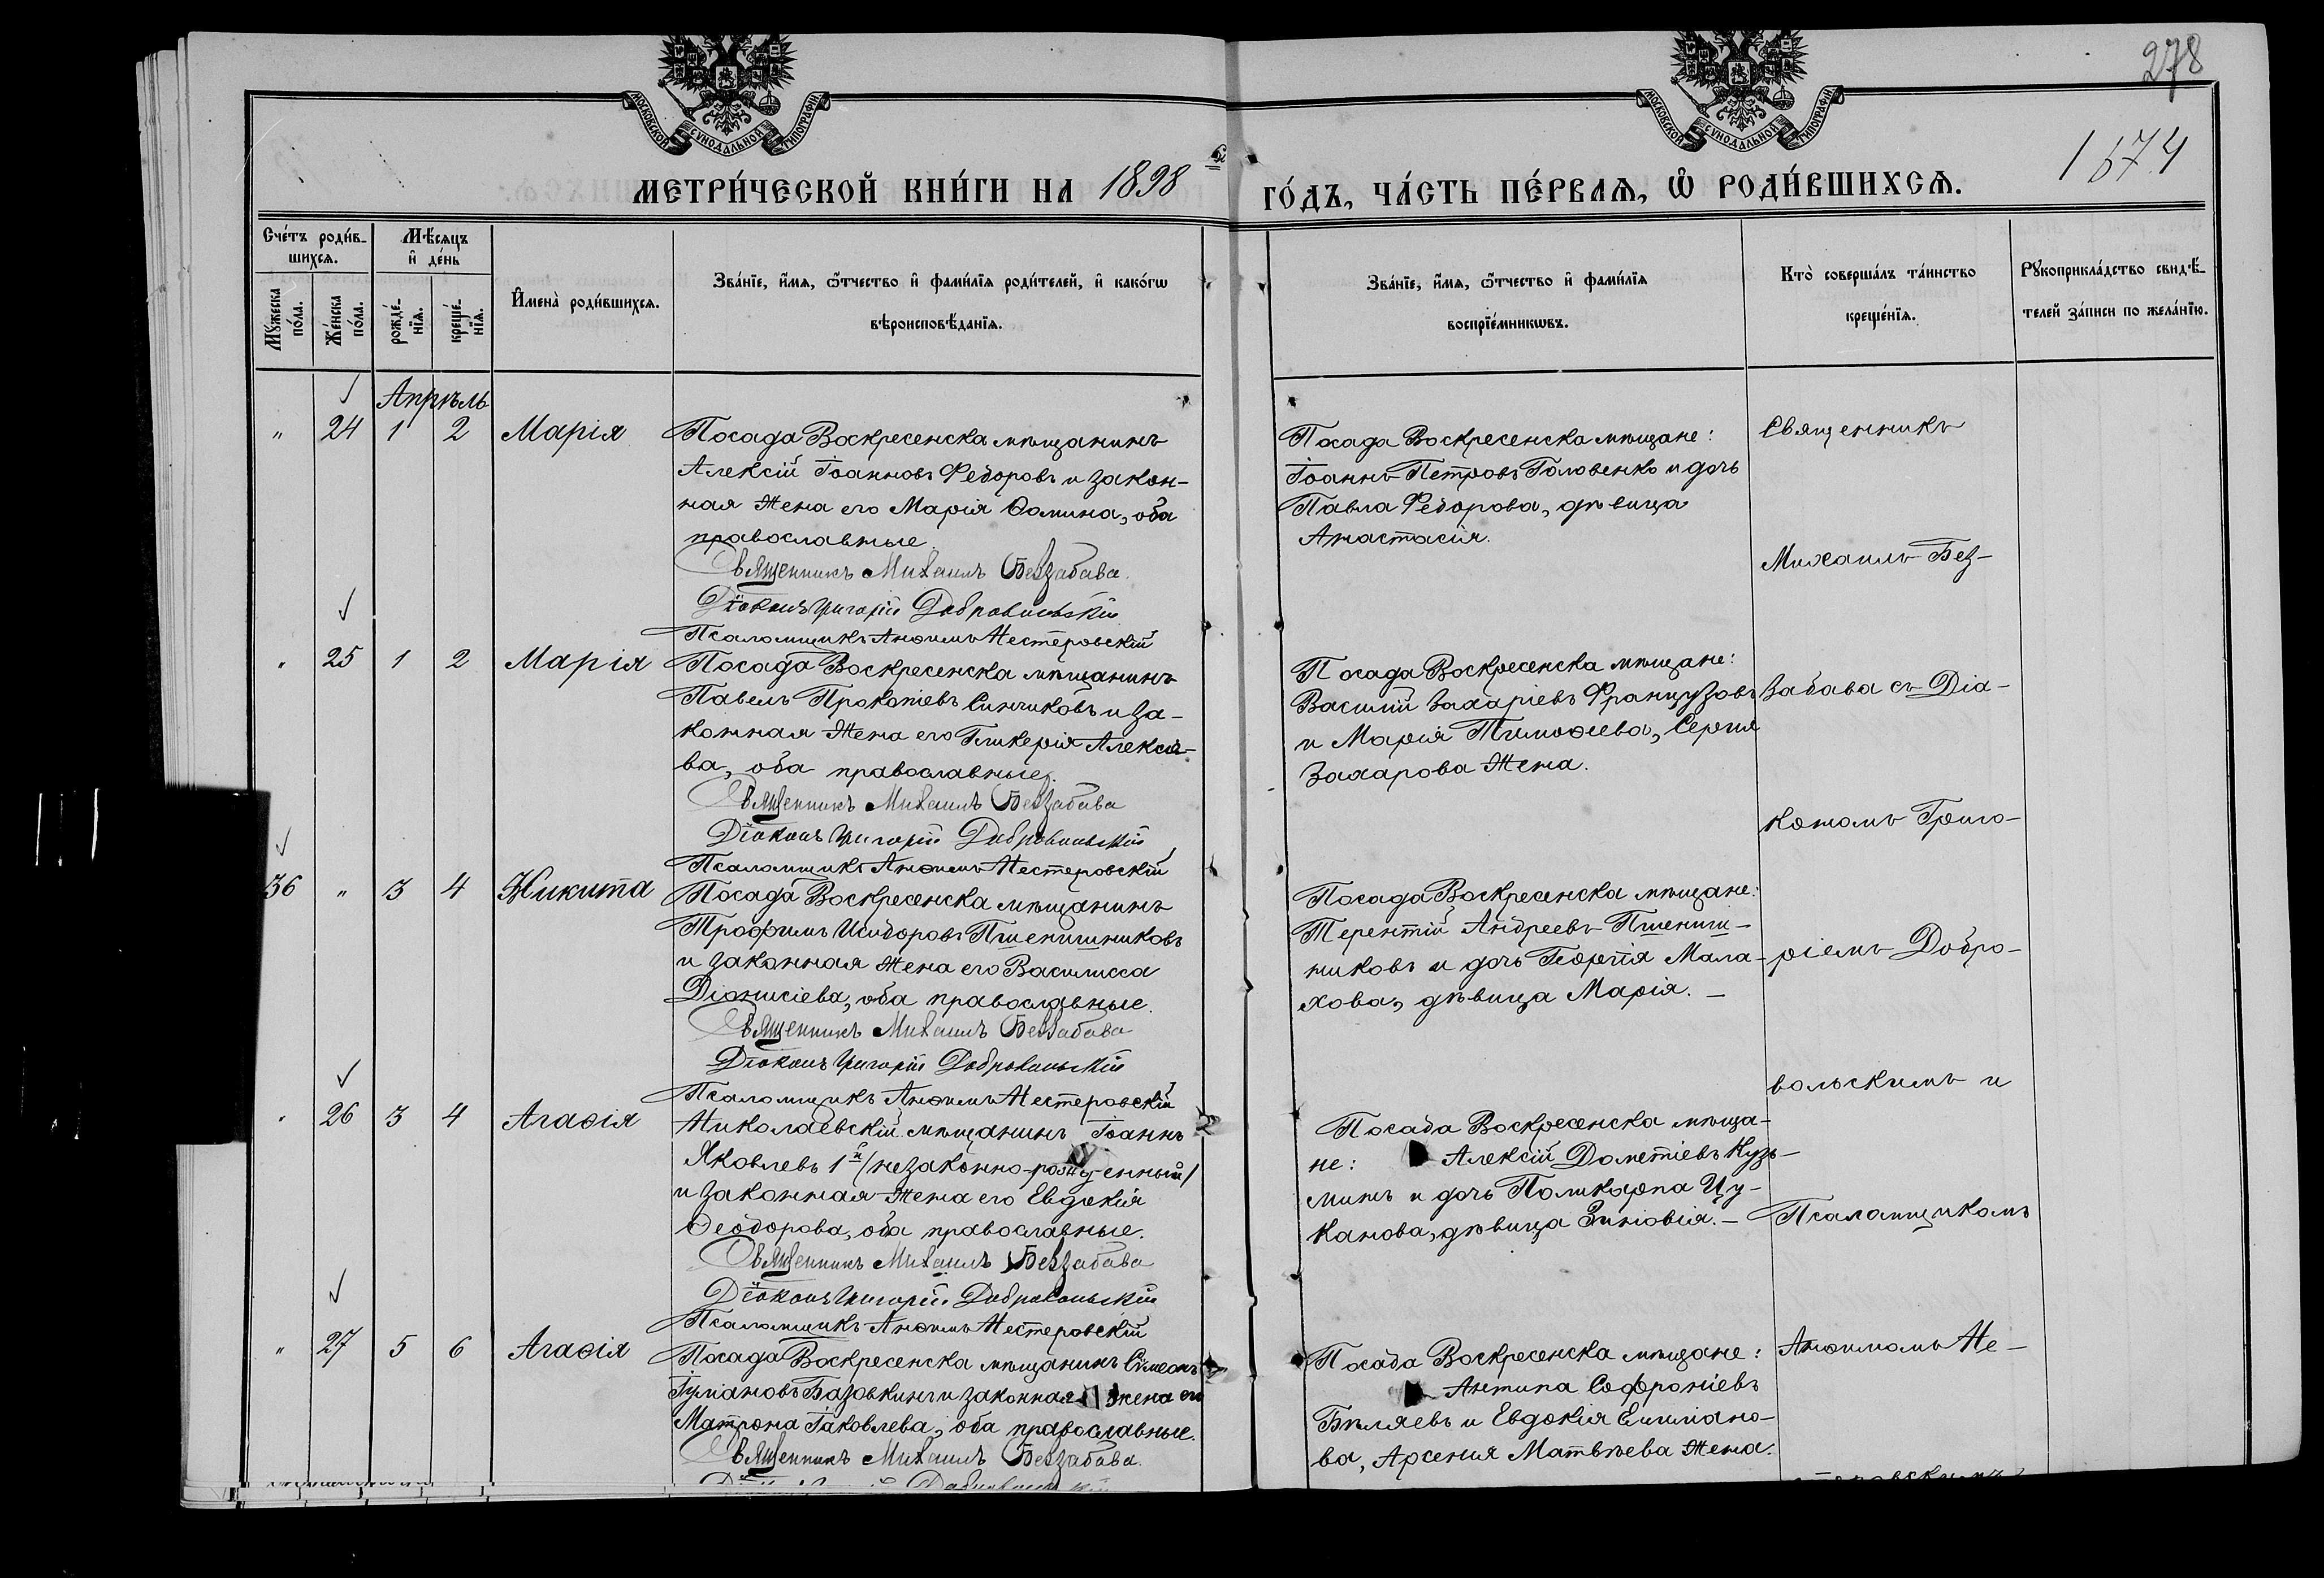 278
1674
МОСКОВСКОЙ СѴНОДАЛЬНОЙ ТИПОГРАФІИ
МОСКОВСКОЙ СѴНОДАЛЬНОЙ ТИПОГРАФІИ
МЕТРИ́ЧЕСКОЙ КНИ́ГИ НА 1898 ГО́ДЪ, ЧА́СТЬ ПЕ́РВАѦ, Ѡ҆ РОДИ́ВШИХСѦ.
Сче́тъ роди́в-
шихсѧ.
Мѹ́жеска по́ла.
Же́нска по́ла.
Мѣ́сѧцъ и҆ де́нь
рожде́-нїѧ.
креще́-нїѧ.
И҆мена̀ роди́вшихсѧ.
Зва́нїе, и҆́мѧ, ѻ҆́тчество и҆ фами́лїѧ роди́телей, и҆ како́гѡ
вѣроисповѣ́данїѧ.
Зва́нїе, и҆́мѧ, ѻ҆́тчество и҆ фами́лїѧ
воспрїе́мникѡвъ.
Кто̀ соверша́лъ та́инство
креще́нїѧ.
Рѹкоприкла́дство свидѣ́-
телей за́писи по жела́нїю.
Апрѣль
" 24 1 2 Марія
Посада Воскресенска мѣщанинъ
Алексій Іоанновъ Федоровъ и закон-
ная жена его Марія Ѳомина, оба
православные.
Священникъ Михаилъ Беззабава.
Діаконъ Григорій Добровольскій
Псаломщикъ Анѳимъ Нестеровскій
Посада Воскресенска мѣщане:
Іоаннъ Петровъ Головенко и дочь
Павла Федорова, дѣвица
Анастасія.
" 25 1 2 Марія
Посада Воскресенска мѣщанинъ
Павелъ Прокопіевъ Синчиковъ и за-
конная жена его Гликерія Алексѣе-
ва, оба православные.
Священникъ Михаилъ Беззабава
Діаконъ Григорій Добровольскій
Псаломщикъ Анѳимъ Нестеровскій
Посада Воскресенска мѣщане:
Василій Захаріевъ Французовъ
и Марія Тимоѳеева, Сергія
Захарова жена.
36 " 3 4 Никита
Посада Воскресенска мѣщанинъ
Трофимъ Исидоровъ Пшеничниковъ
и законная жена его Василисса
Діонисіева, оба православные.
Священникъ Михаилъ Беззабава
Діаконъ Григорій Добровольскій
Псаломщикъ Анѳимъ Нестеровскій
Посада Воскресенска мѣщане:
Терентій Андреевъ Пшенич-
никовъ и дочь Георгія Мала-
хова, дѣвица Марія. —
" 26 3 4 Агаѳія
Николаевскій мѣщанинъ Іоаннъ
Яковлевъ 1й /незаконно-рожденный/
и законная жена его Евдокія
Ѳеодорова, оба православные.
Священникъ Михаилъ Беззабава
Діаконъ Григорій Добровольскій
Псаломщикъ Анѳимъ Нестеровскій
Посада Воскресенска мѣща-
не: Алексій Дометіевъ Кузь-
минъ и дочь Поликарпа Цу-
канова, дѣвица Зиновія. —
" 27 5 6 Агаѳія
Посада Воскресенска мѣщанинъ Сѵмеонъ
Іуліановъ Базовкинъ и законная жена его
Матрона Іаковлева, оба православные.
Священникъ Михаилъ Беззабава.
Посада Воскресенска мѣщане:
Антипа Софроніевъ
Бѣляевъ и Евдокія Емиліано-
ва, Арсенія Матвѣева жена.
Священникъ
Михаилъ Без-
забава съ Діа-
кономъ Григо-
ріемъ Добро-
вольскимъ и
Псаломщикомъ
Анѳимомъ Не-
стеровскимъ